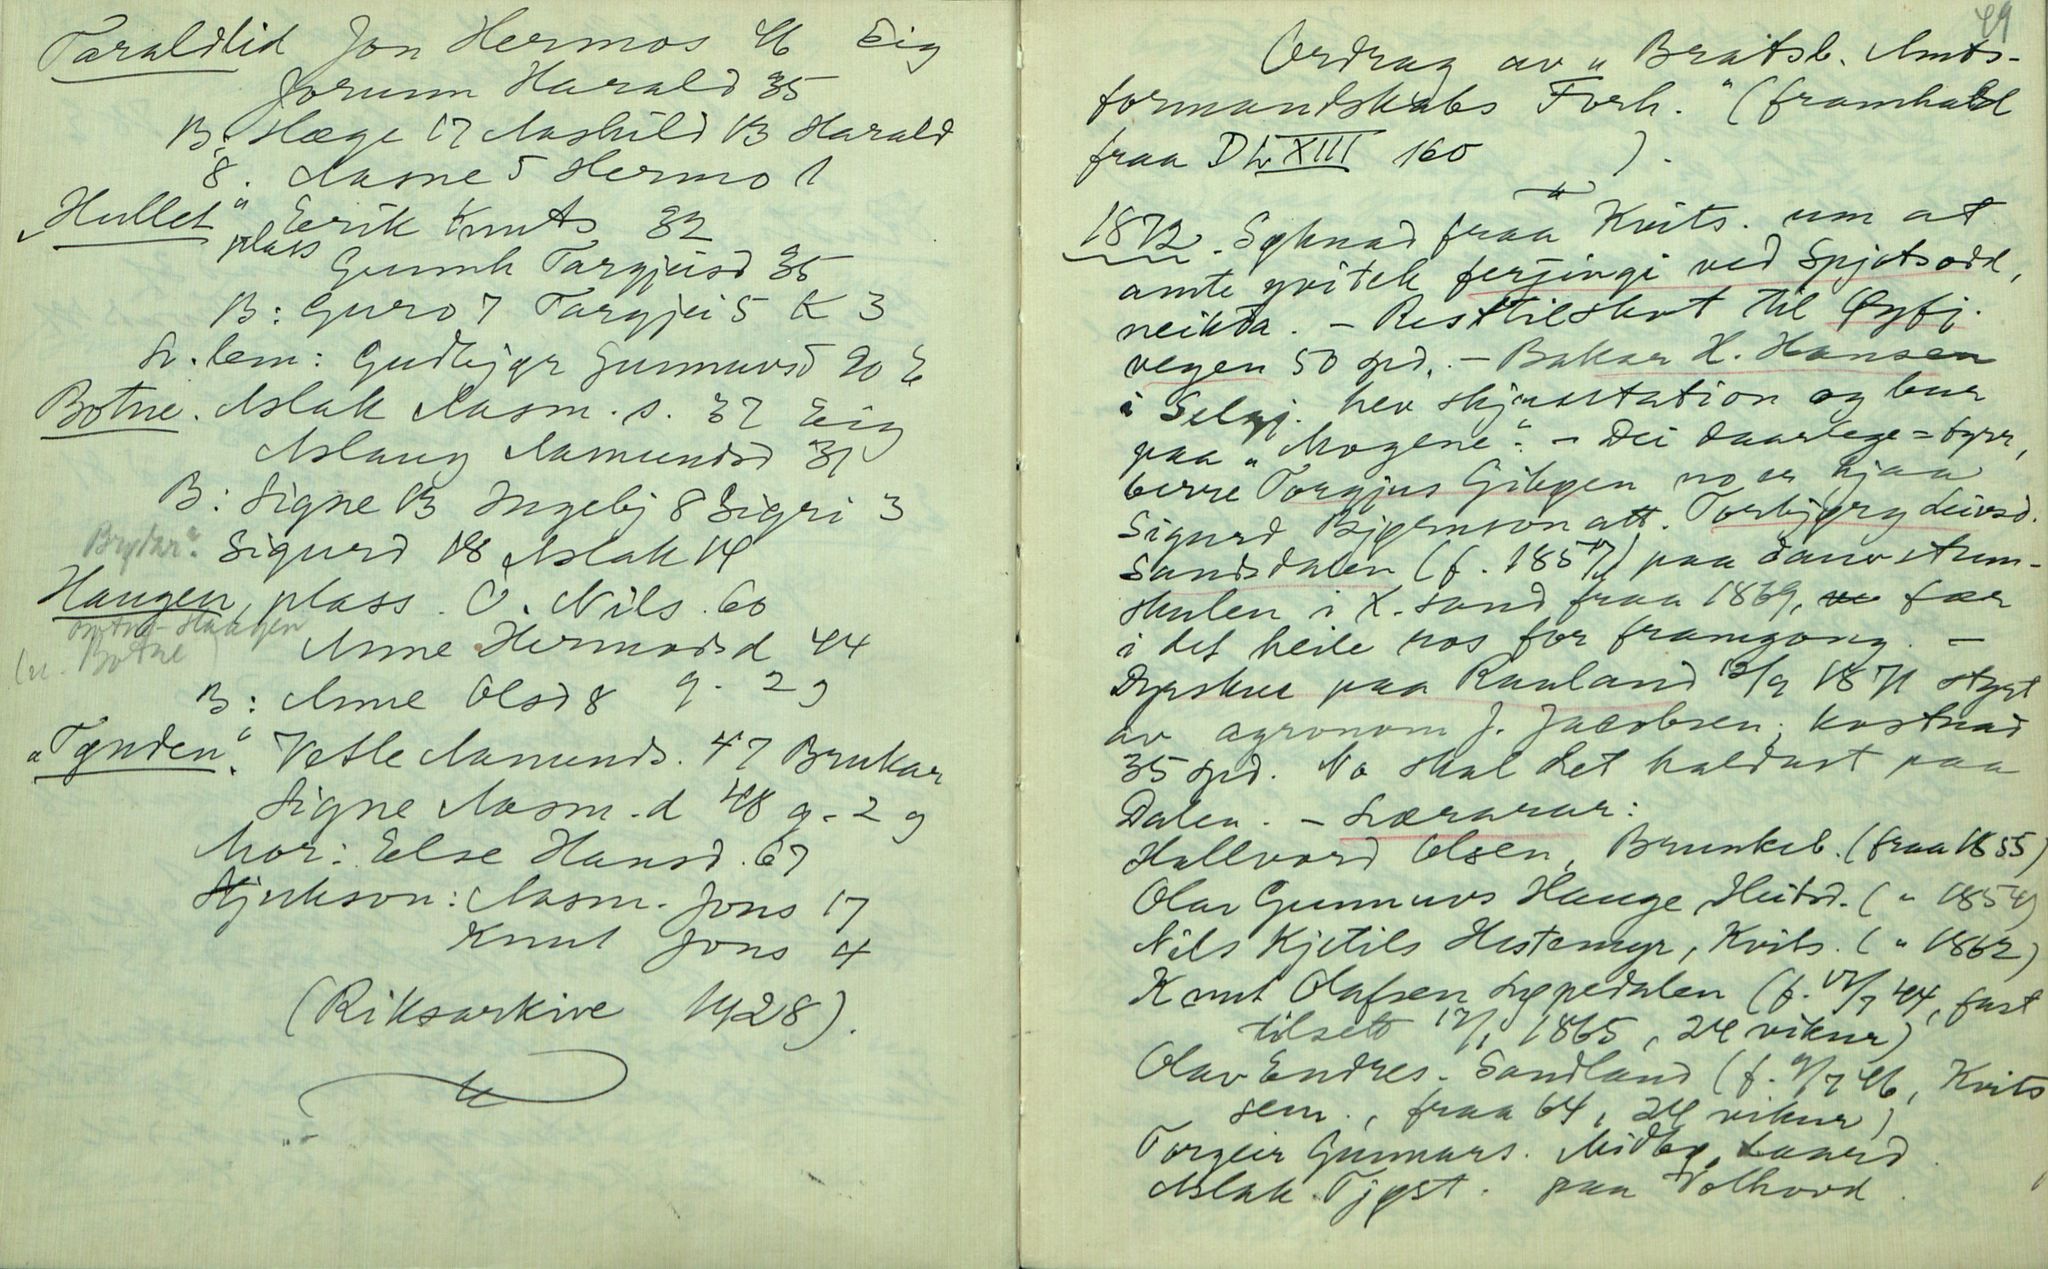 Taraldlid Jon Hermos 46 Eig
Jorunn Harald 35
B: Hæge 17 Aashild 13 Harald
8. Aasne 5 Hermo 1
"Hullet" Eerik Knuts 32
plass
Gunnh Targjusd 35
B: Guro 7 Targjei 5 K 3
Gudbjør Gunnuvsd 20
Botne. Aslak Aasm. s. 32 Eig
Aslaug Aamundsd 31
B: Signe 13 Ingebj 8 Sigri 3
Sigurd 18 Aslak 14
Haugen, plass. O. Nils. 60
Botne-Haugen
Botne)
Anne Hermodsd 44
B: Anne Olsd 8 g. 2 g
"Tynden". Vetle Aamunds. 47 Brukar
Signe Aasm. d 48 g. 2 g
Mor: Else Hansd. 67
Stjukson: Aasm. Jons 17
Knut Jons 4
(Riksarkive 1928).
49
Ordrag av "Bratsb. Amts-
formandskabs Forh." (framhald
fraa XIII 160 ).
1872. Søknad fraa Kvits. um at
amte yvitek ferjingi ved Spjotsodd,
neikta. - Resttilskot til Øyfj.
vegen 50 spd. - Bakar H. Hansen
i Selj. hev skjusstation og bur
paa "Mogene". - Dei daarlege = byrr,
berre Torgjus Gibøen no er hjaa
Sigurd Bjørnson att. Torbjørg Leivsd.
Sundsdalen (f. 1857) paa dauvstum-
skulen i K.sand fraa 1869, fær
i det heile ros for framgong. -
Dyrskue paa Rauland 12/9 1871 styrt
av agronom J. Jacobsen; kostnad
35 spd. No skal det haldast paa
Dalen. - Lærarar:
Hallvord Olsen, Brunkeb. (fraa 1855)
Olav Gunnuvs Hauge, Heidsd. ( " 1854)
Nils Kjetils Hestemyr, Kvits. ( " 1862)
Knut Olafsen Lypedalen (f. 17/7 44, fast
tilsett 12/1 1865, 24 vikur)
Olav Endres. Sandland (f. 9/7 46, Kvits
sem., fraa 64, 24 vikur)
Torgeir Gunnars. Midbø, Laard.
Aslak Tjøst. paa Nolhovd.